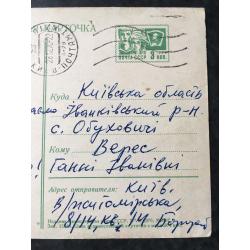 КАРТОЧКА
ПОЧТА СССР
Куда Київська область
Іванківський р-н.
с. Обуховичі
Кому Верес
Ганкі Іванівні
Адрес отправителя: Київ,
В/житомірська,
8/14, кв. 14